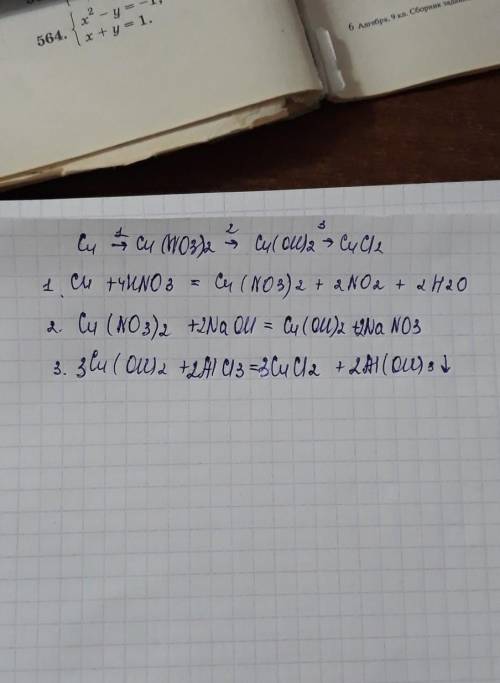 {x² − y = −1,
564. {x + y = 1.
6 Алгебра, 9 кл. Сборник
Cu →1 Cu(NO3)2 →2 Cu(OH)2 →3 CuCl2
1. Cu + 4HNO3 = Cu(NO3)2 + 2NO2 + 2H2O
2. Cu(NO3)2 + 2NaOH = Cu(OH)2 + 2NaNO3
3. 3Cu(OH)2 + 2AlCl3 = 3CuCl2 + 2Al(OH)3↓